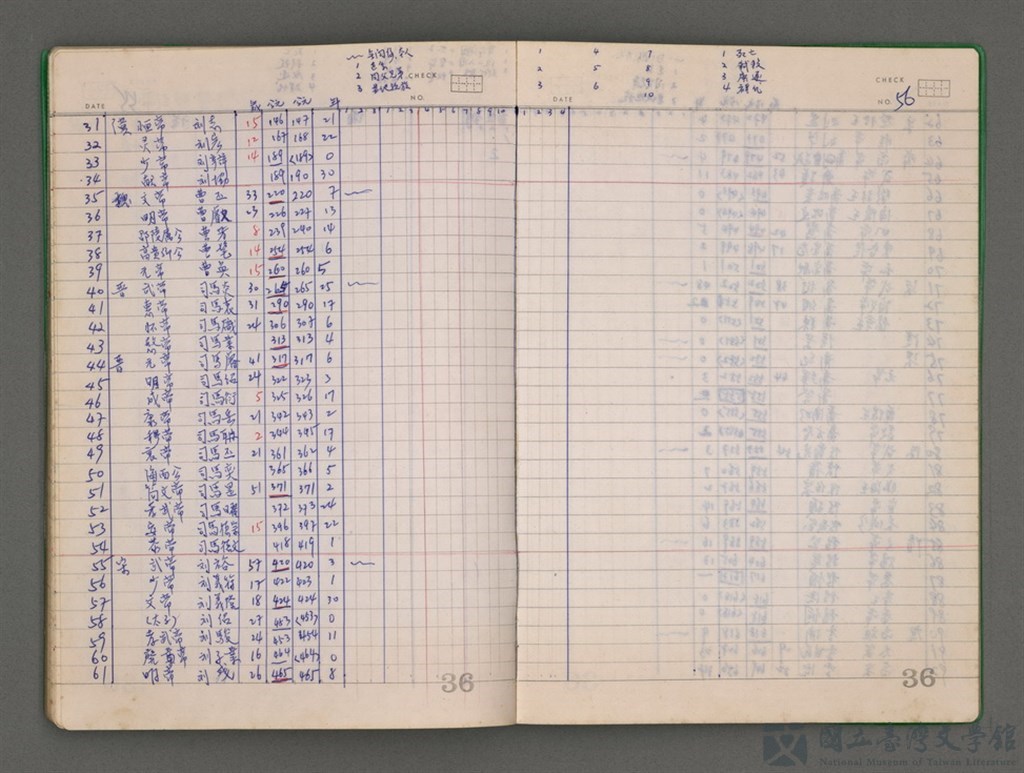 1
2 同父兄弟
3
CHECK
NO.
DATE
歲 公元 公元 年
31 漢 桓帝 刘志 15 146 147 21
32 灵帝 刘宏 12 167 168 22
33 少帝 刘辯 14 189 <189> 0
34 献帝 刘協 189 190 30
35 魏 文帝 曹丕 33 220 220 7
36 明帝 曹叡 23 226 227 13
37 邵陵厲公 曹芳 8 239 240 14
38 高貴鄉公 曹髦 14 254 254 6
39 元帝 曹奐 15 260 260 5
40 晋 武帝 司馬炎 30 265 265 25
41 惠帝 司馬衷 31 290 290 17
42 怀帝 司馬熾 24 306 307 6
43 愍帝 司馬業 313 313 4
44 晋 元帝 司馬睿 41 317 317 6
45 明帝 司馬紹 24 322 323 3
46 成帝 司馬衍 5 325 326 17
47 康帝 司馬岳 21 342 343 2
48 穆帝 司馬聃 2 344 345 17
49 哀帝 司馬丕 21 361 362 4
50 海西公 司馬奕 365 366 5
51 簡文帝 司馬昱 51 371 371 2
52 孝武帝 司馬曜 372 373 24
53 安帝 司馬德宗 15 396 397 22
54 恭帝 司馬德文 418 419 1
55 宋 武帝 刘裕 57 420 420 3
56 少帝 刘義符 17 422 423 1
57 文帝 刘義隆 18 424 424 30
58 (太子) 刘劭 27 453 <453> 0
59 孝武帝 刘駿 24 453 454 11
60 廢帝 刘子業 16 464 <464> 0
61 明帝 刘彧 26 465 465 8
36
1 4 7 1
2 5 8 2
3 6 9 3
10 4
CHECK
DATE
NO. 56
36
國立臺灣文學館
National Museum of Taiwan Literature